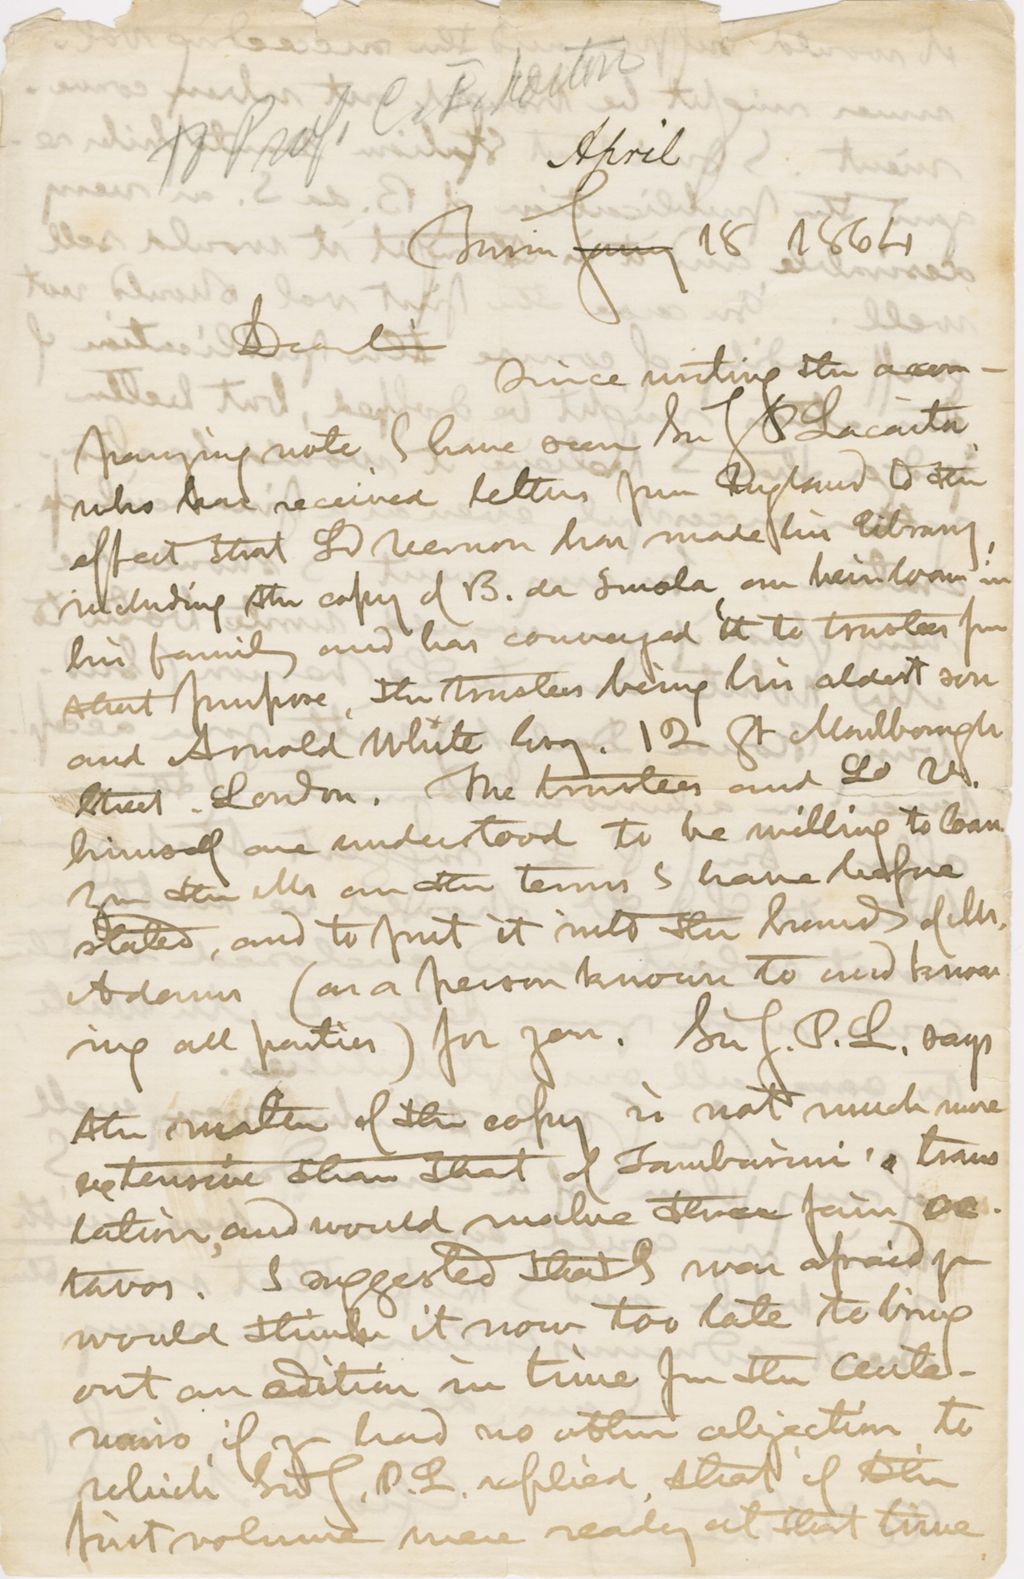 Prof. C. E. Norton
April
Turin Jany 18 1864
Dear
Since writing the accom-
panying note I have seen Sir J P Lacaita,
who has received letters from England to the
effect that Ld Vernon has made his library,
including the copy of B. da Imola, an heirloom in
his family and has conveyed it to trustees for
that purpose, the trustees being his eldest son
and Arnold White Esq. 12 Gt Marlborough
Street. London. The trustees and Ld V.
himself are understood to be willing to loan
you the Ms on the terms I have before
stated, and to put it into the hands of Mr.
Adams (as a person known to and know
ing all parties) for you. Sir J. P. L. says
the matter of the copy is not much more
extensive than that of Tamburini's trans
lation, and would make three fair oc-
tavos. I suggested that I was afraid you
would think it now too late to bring
out an edition in time for the Cente-
nario, if you had no other objection to
which Sir J. P. L. replied, that if the
first volume were ready at that time